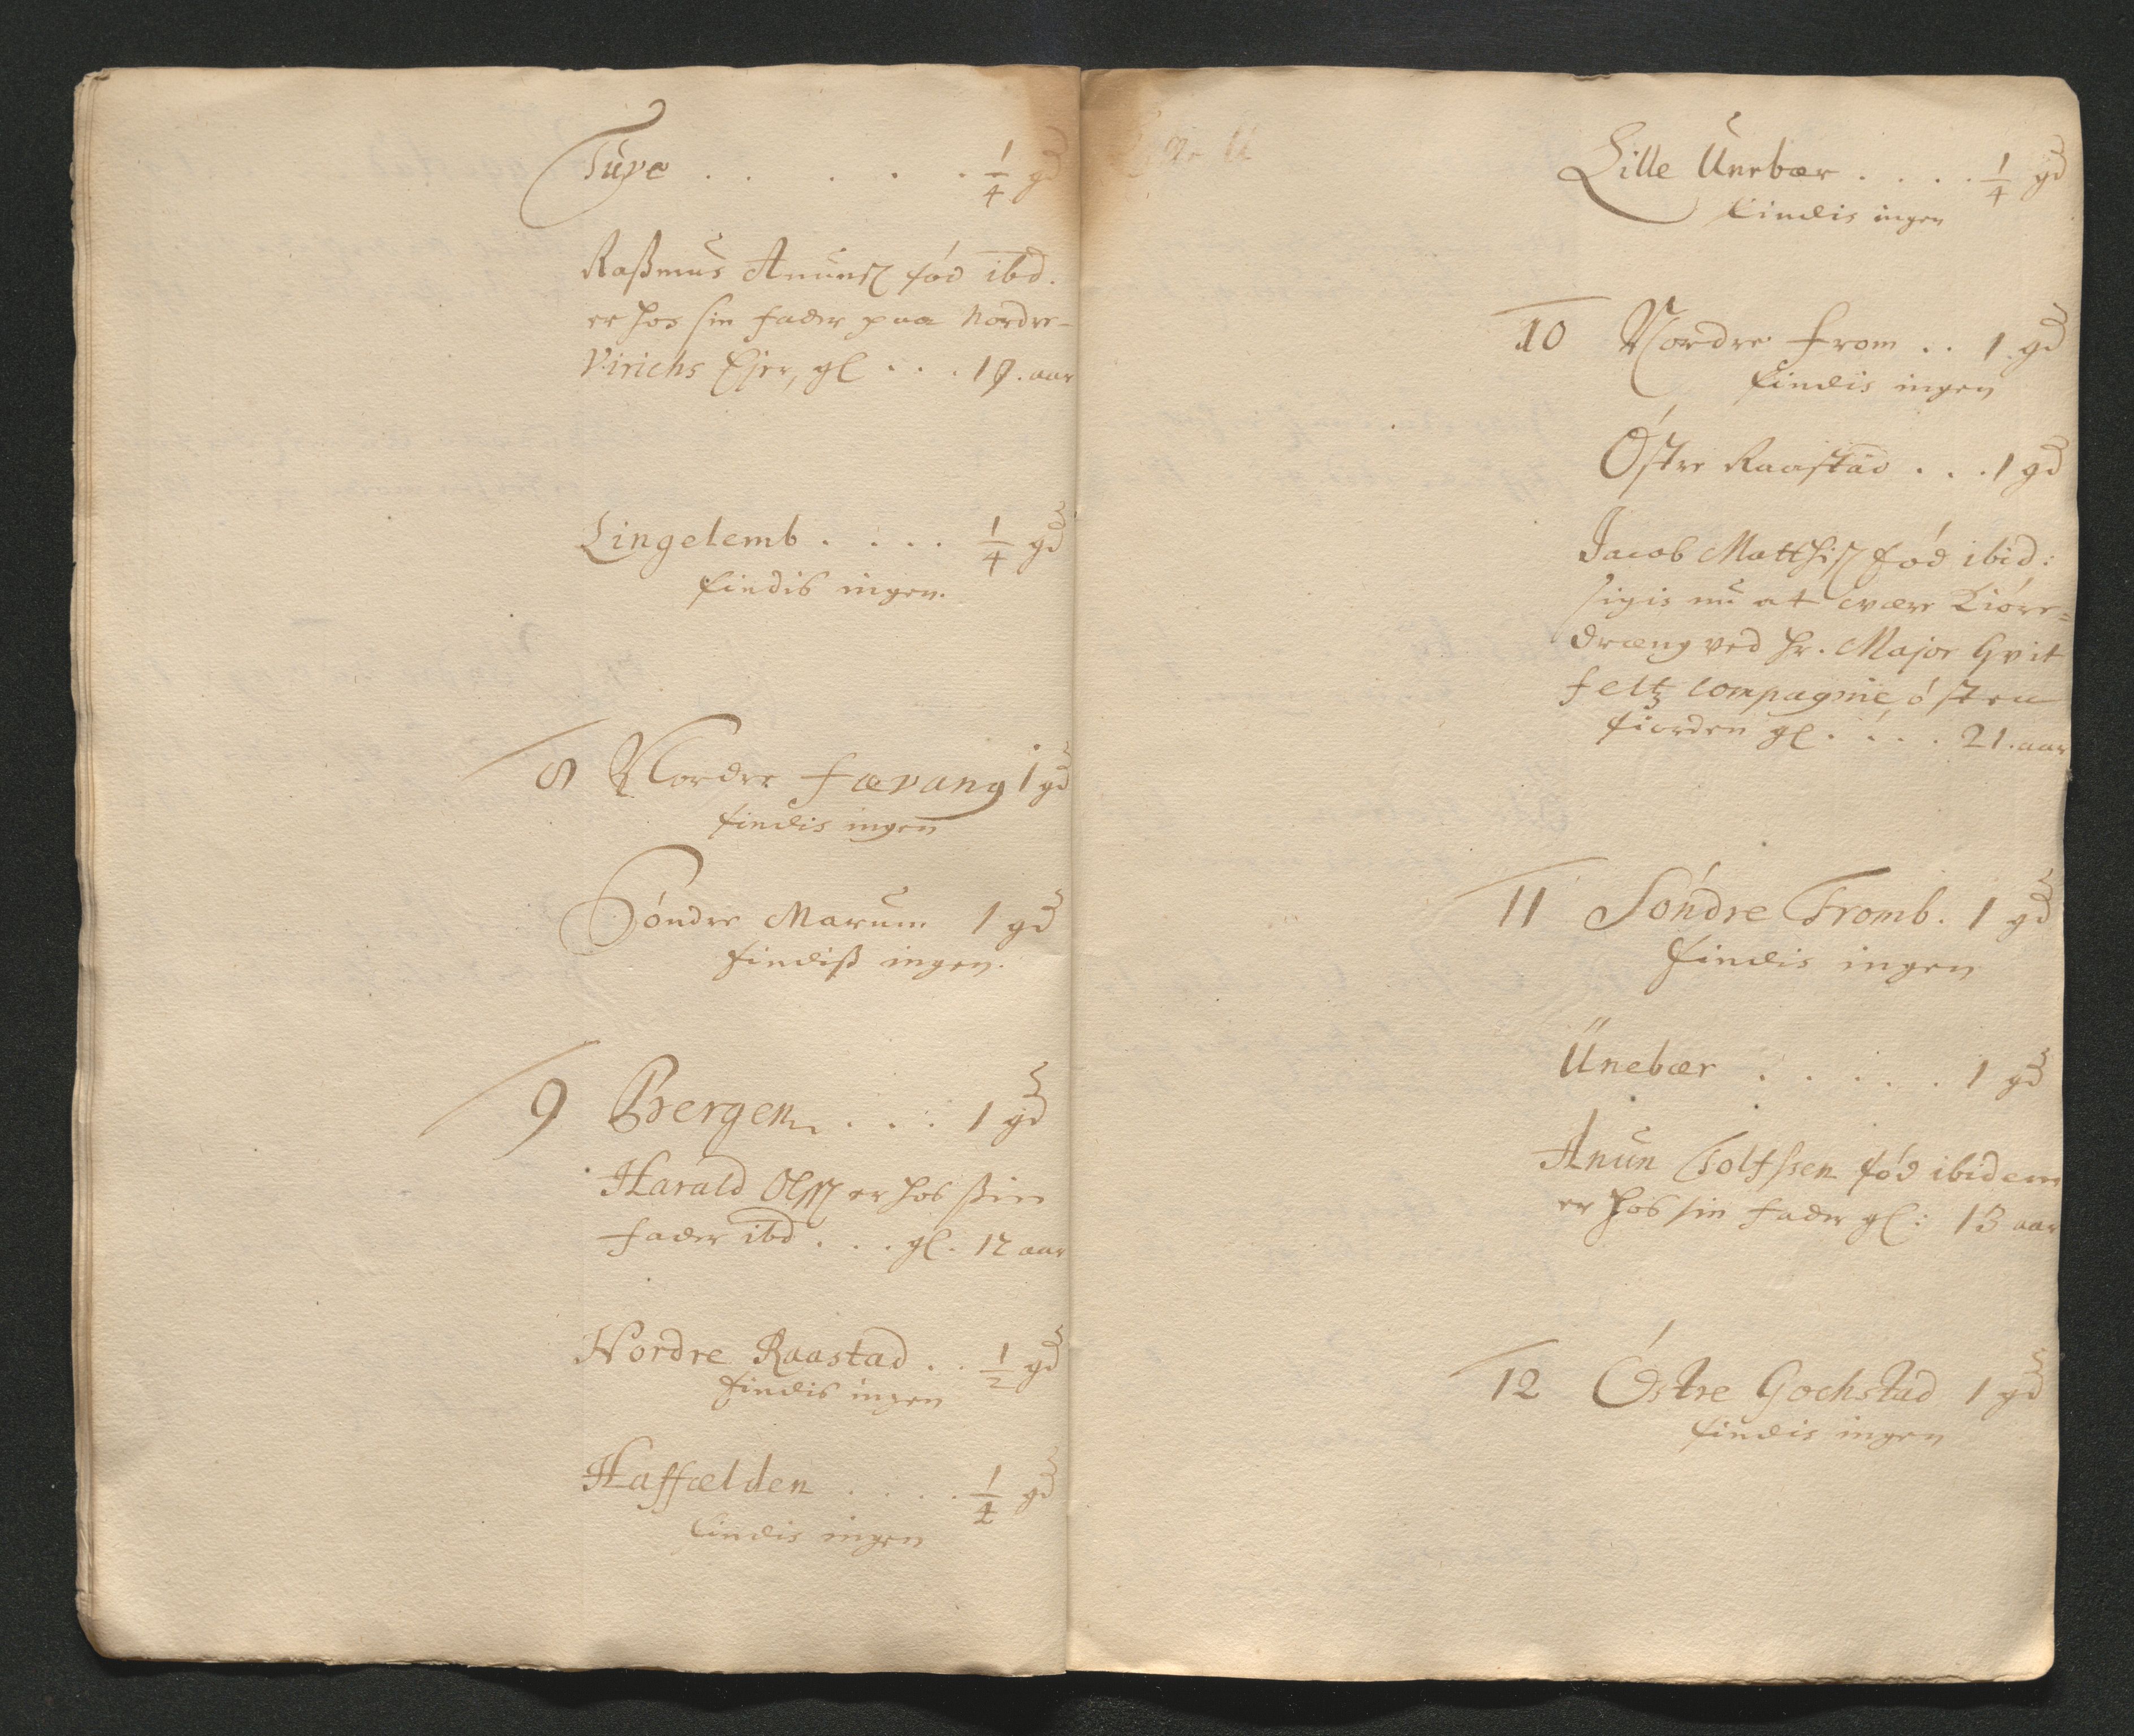 Tüpe . . . . . 1/4 gd
Raßmus Anuns fød ibd.
er hos sin fader paa Nordre-
Virichs Ejer, gl . . . 19. aar
Lingelemb . . . . 1/4 gd
findis ingen.
8 Nordre Fævang 1 gd
findis ingen
Søndre Marum 1 gd
findiß ingen.
9 Bergen . . . 1 gd
Harald Olss er hos ßin
fader ibd . . . gl. 12 aar
Nordre Raastad . . 1/2 gd
findis ingen
Haffælden . . . . 1/4 gd
findis ingen
Lille Unebær . . . . 1/4 gd
findis ingen
10 Nordre From . . 1 gd
findis ingen
Østre Raastad . . . 1 gd
Jacob Matthiss fød ibid:
sigis nu at være Kiøre=
dreng ved Hr. Major Hvit
feltz Compagnie østen
fiorden gl . . . . 21. aar
11 Søndre Fromb. 1 gd
findis ingen
Ünebær . . . . . 1 gd
Anun Tolfssen fød ibidem
er hos sin fader gl: 13 aar
12 Østre Gochstad 1 gd
findis ingen